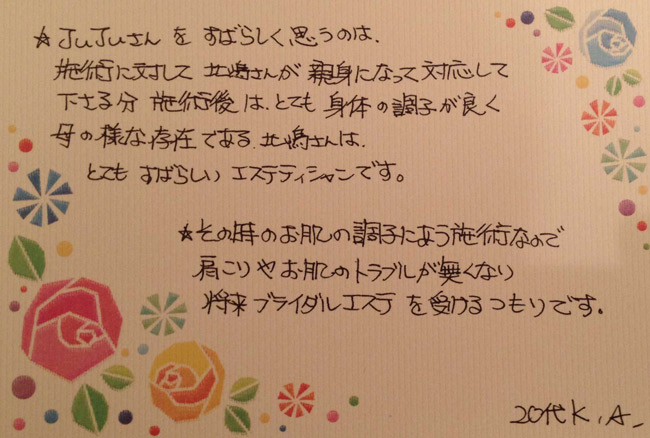 ☆JuJuさんをすばらしく思うのは、
施術に対して北嶋さんが親身になって対応して
下さる分施術後は、とても身体の調子が良く
母の様な存在である、北嶋さんは、
とてもすばらしいエステティシャンです。
☆その時のお肌の調子にあう施術なので
肩こりやお肌のトラブルが無くなり
将来ブライダルエステを受けるつもりです。
20代K.A.